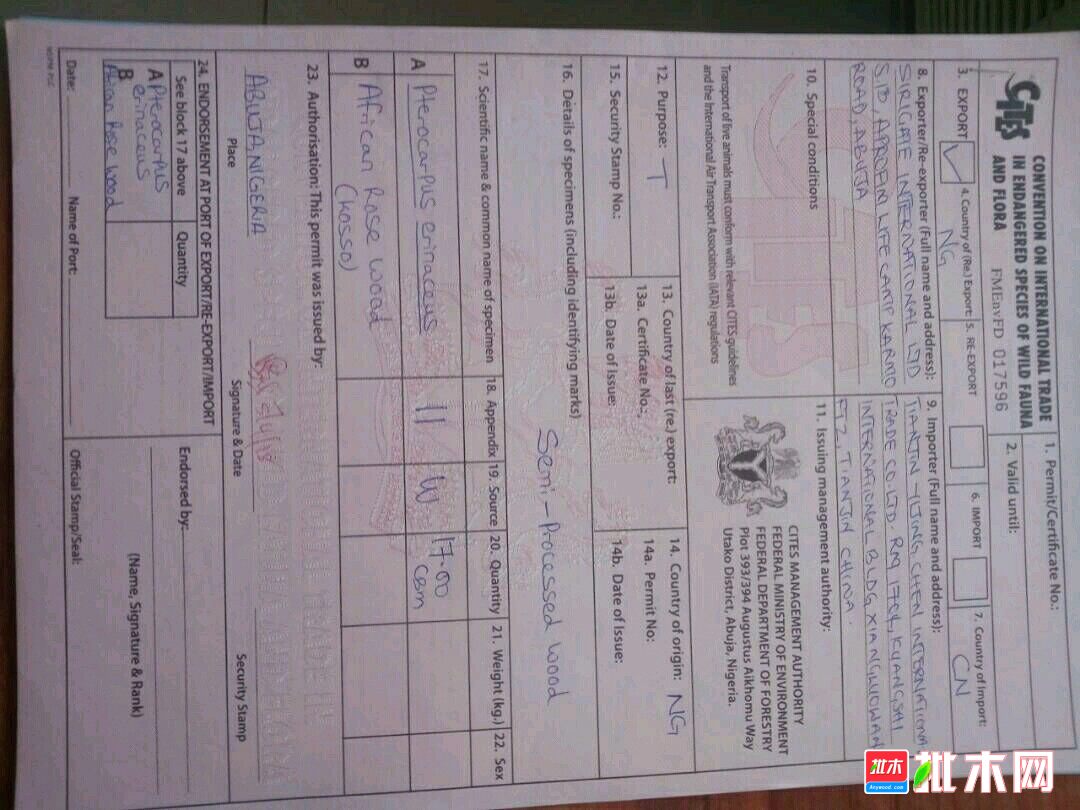 CITES
CONVENTION ON INTERNATIONAL TRADE
IN ENDANGERED SPECIES OF WILD FAUNA
AND FLORA
FMEnvFD 017596
1. Permit/Certificate No.:
2. Valid until:
3. EXPORT
4. Country of (Re.) Export:
NG
5. RE-EXPORT
6. IMPORT
7. Country of Import:
CN
8. Exporter/Re-exporter (Full name and address):
INTERNATIONAL LTD
LIFE CAMP KARMO
ROAD, ABUJA
9. Importer (Full name and address):
TIANJIN CHEN INTERNATIONAL
TRADE CO. LTD. RM 1704,
INTERNATIONAL BLDG
FTZ. TIANJIN CHINA.
10. Special conditions
Transport of live animals must conform with relevant CITES guidelines
and the International Air Transport Association (IATA) regulations
11. Issuing management authority:
CITES MANAGEMENT AUTHORITY
FEDERAL MINISTRY OF ENVIRONMENT
FEDERAL DEPARTMENT OF FORESTRY
Plot 393/394 Augustus Aikhomu Way
Utako District, Abuja, Nigeria.
12. Purpose: T
13. Country of last (re.) export:
14. Country of origin: NG
13a. Certificate No.:
14a. Permit No:
15. Security Stamp No.:
13b. Date of Issue:
14b. Date of Issue:
16. Details of specimens (including identifying marks)
Semi-Processed Wood
17. Scientific name & common name of specimen
18. Appendix
19. Source
20. Quantity
21. Weight (kg.)
22. Sex
A
Pterocarpus erinaceus
II
W
17.00
CBM
B
African Rose Wood
(Kosso)
23. Authorisation: This permit was issued by:
ABUJA, NIGERIA
Place
Signature & Date
Security Stamp
24. ENDORSEMENT AT PORT OF EXPORT/RE-EXPORT/IMPORT
See block 17 above
Quantity
A Pterocarpus
erinaceus
B
African Rose wood
Endorsed by:
(Name, Signature & Rank)
Date:
Name of Port:
Official Stamp/Seal:
NSPM PLC
批木
Anywood.com
批木网